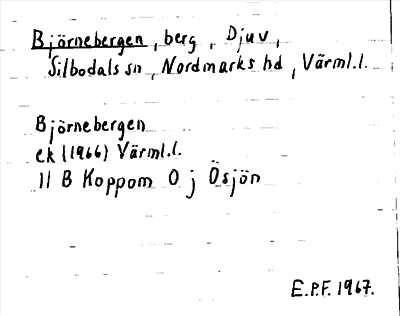 Björnebergen, berg, Djuv,
Silbodals sn, Nordmarks hd, Värml.l.
Björnebergen
ek (1966) Värml.l.
11 B Koppom O j Ösjön
E.P.F. 1967.